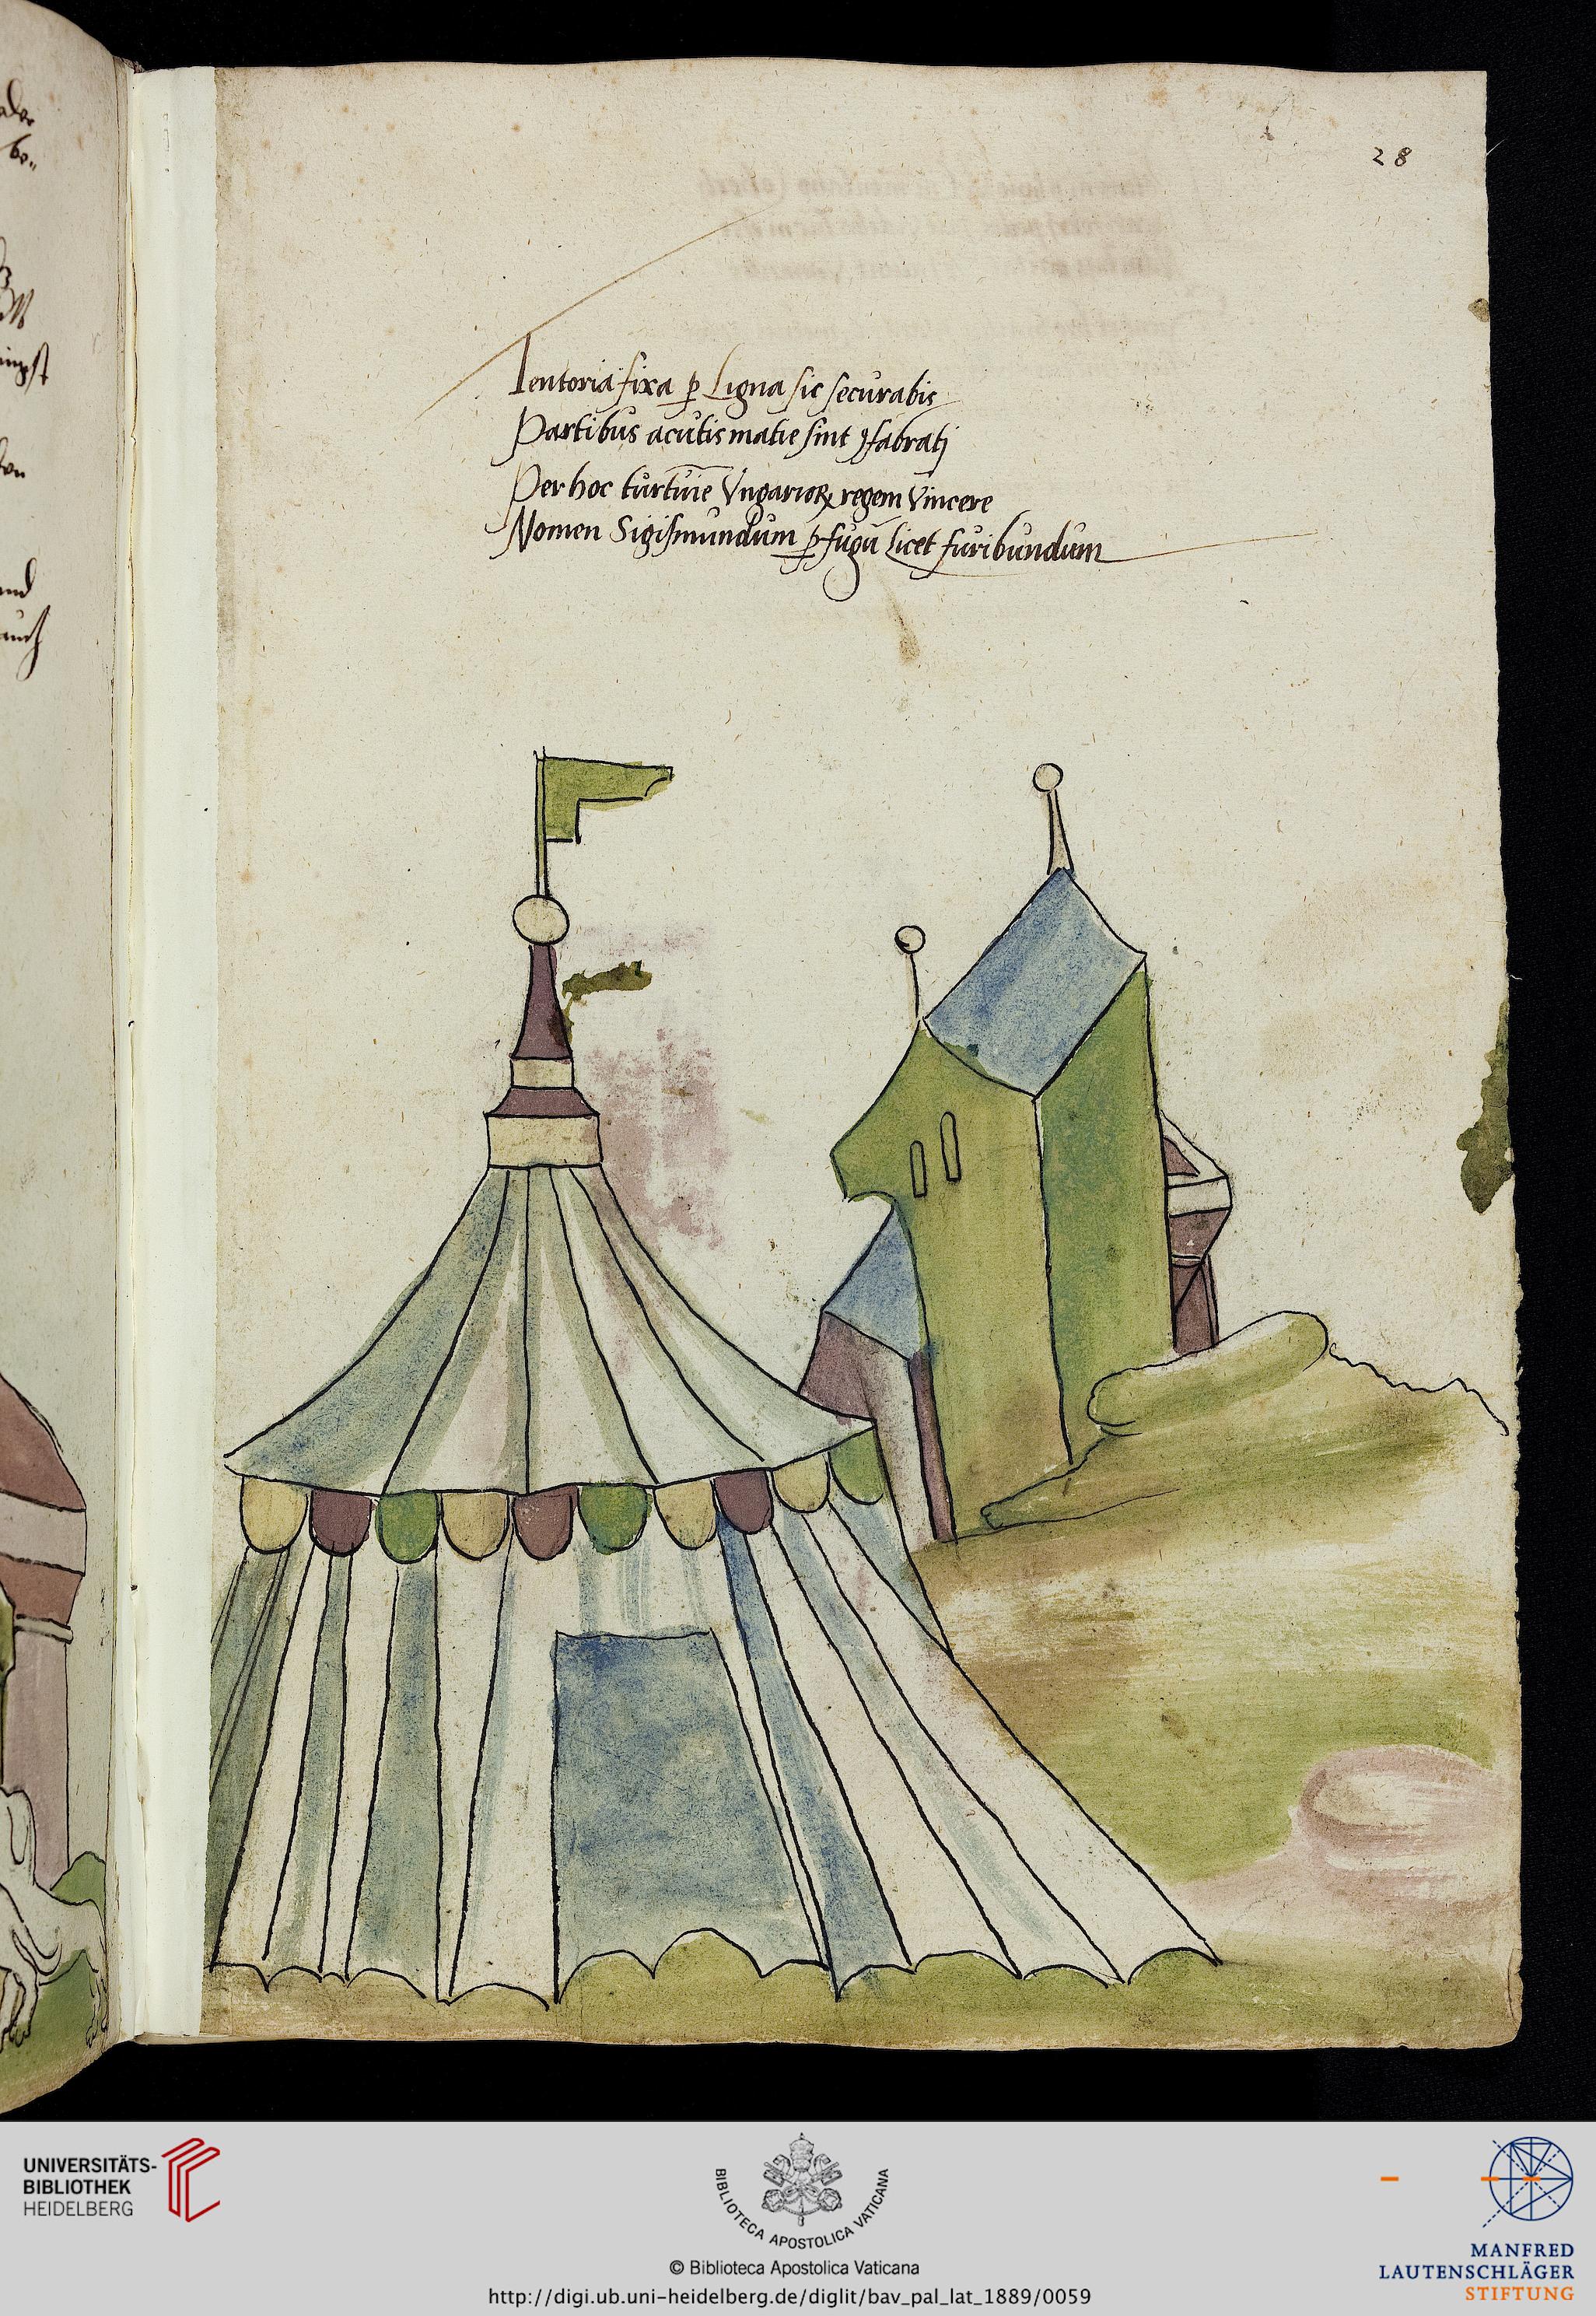 28
Tentoria fixa ꝑ Ligna sic securabis
Partibus acutis matie sint ꝯfabratj
Per hoc turtūie Vngarioꝝ regem Vincere
Nomen Sigismundum ꝓfugū licet furibundum
und
auch
UNIVERSITÄTS-
BIBLIOTHEK
HEIDELBERG
BIBLIOTECA APOSTOLICA VATICANA
© Biblioteca Apostolica Vaticana
http://digi.ub.uni-heidelberg.de/diglit/bav_pal_lat_1889/0059
MANFRED
LAUTENSCHLÄGER
STIFTUNG